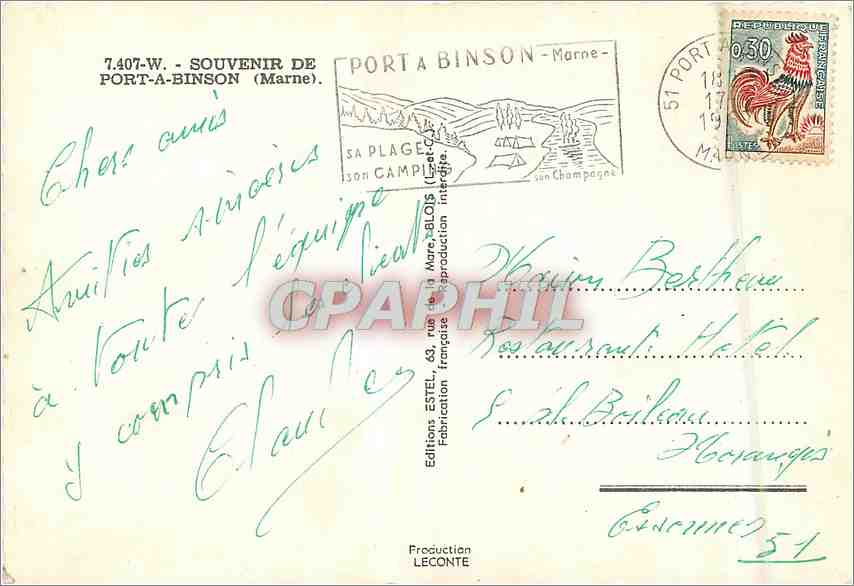 7.407-W. - SOUVENIR DE
PORT-A-BINSON (Marne).
PORT A BINSON - Marne -
SA PLAGE
son CAMPING
son Champagne
51 PORT A
18
17
19
MARNE
REPUBLIQUE FRANÇAISE
0,30
POSTES
Chers amis
Amitiés sincères
à toute l'équipe
y compris
Editions ESTEL, 63, rue de la Mare, BLOIS (L.-et-C.)
Fabrication française - Reproduction interdite.
CPAPHIL
Maison Bertheau
Restaurant Hotel
Boileau
Morangis
Essonnes
51
Production
LECONTE